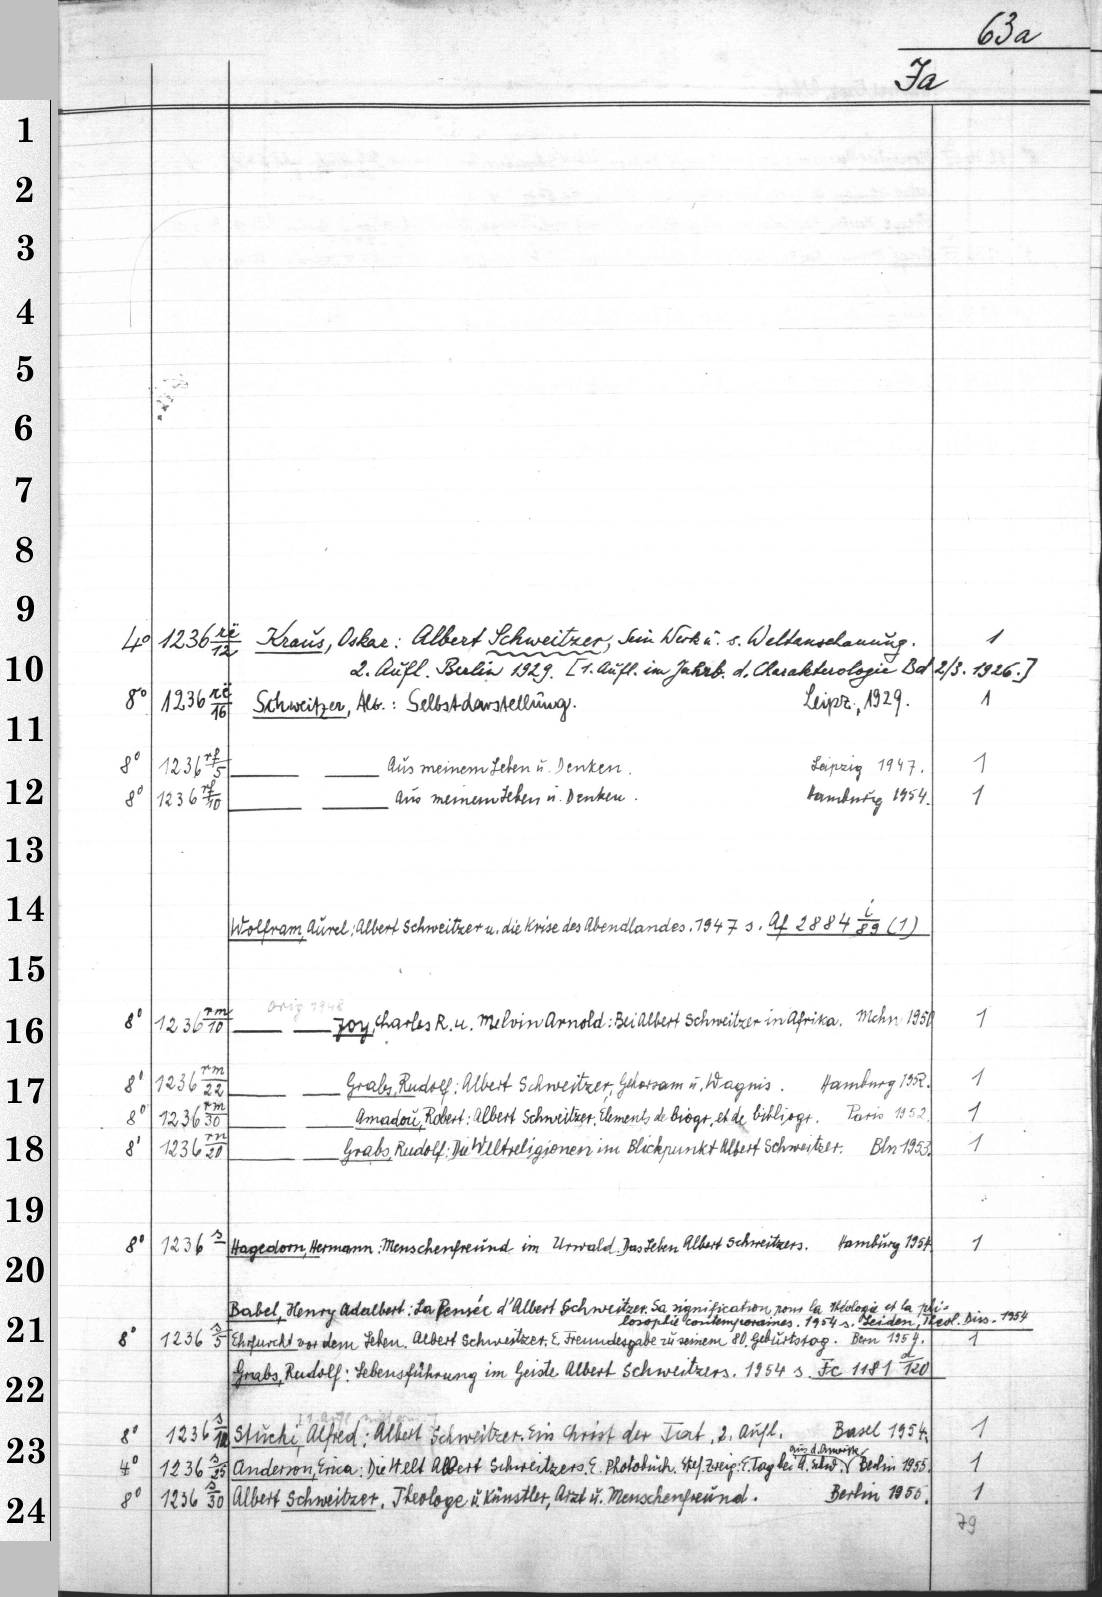 63a
Ja
1
2
3
4
5
6
7
8
9
10
11
12
13
14
15
16
17
18
19
20
21
22
23
24
4° 1236 rë/12 Kraus, Oskar: Albert Schweitzer, Sein Werk u. s. Weltanschauung. 1
2. Aufl. Berlin 1929. [1. Aufl. im Jahrb. d. Charakterologie Bd 2/3. 1926.]
8° 1236 rë/16 Schweitzer, Alb.: Selbstdarstellung. Leipz., 1929. 1
8° 1236 rf/5 Aus meinem Leben u. Denken. Leipzig 1947. 1
8° 1236 rf/10 Aus meinem Leben u. Denken. Hamburg 1954. 1
Wolfram, Aurel: Albert Schweitzer u. die Krise des Abendlandes. 1947 s. Af 2884 i/89 (1)
orig 1948
8° 1236 rm/10 Joy, Charles R. u. Melvin Arnold: Bei Albert Schweitzer in Afrika. Mchn 1950 1
8° 1236 rm/22 Grabs, Rudolf: Albert Schweitzer, Gehorsam u. Wagnis. Hamburg 1952. 1
8° 1236 rm/30 Amadou, Robert: Albert Schweitzer. Élements de biogr. et de bibliogr. Paris 1952. 1
8° 1236 rn/20 Grabs, Rudolf: Die Weltreligionen im Blickpunkt Albert Schweitzer. Bln 1953. 1
8° 1236 s Hagedorn, Hermann: Menschenfreund im Urwald. Das Leben Albert Schweitzers. Hamburg 1954. 1
Babel, Henry Adalbert: La Pensée d'Albert Schweitzer. Sa signification pour la théologie et la phi-
losophie contemporaines. 1954 s. Leiden, Theol. Diss. 1954
8° 1236 s/5 Ehrfurcht vor dem Leben. Albert Schweitzer. E. Freundesgabe zu seinem 80. Geburtstag. Bern 1954. 1
Grabs, Rudolf: Lebensführung im Geiste Albert Schweitzers. 1954 s. Fc 1181 d/120
8° 1236 s/10 Stucki, Alfred: Albert Schweitzer. Ein Christ der Tat. 2. Aufl. Basel 1954. 1
aus d. Amerik.
4° 1236 s/25 Anderson, Erica: Die Welt Albert Schweitzers. E. Photobuch. Berlin 1955. 1
8° 1236 s/30 Albert Schweitzer. Theologe u. Künstler, Arzt u. Menschenfreund. Berlin 1955. 1
79